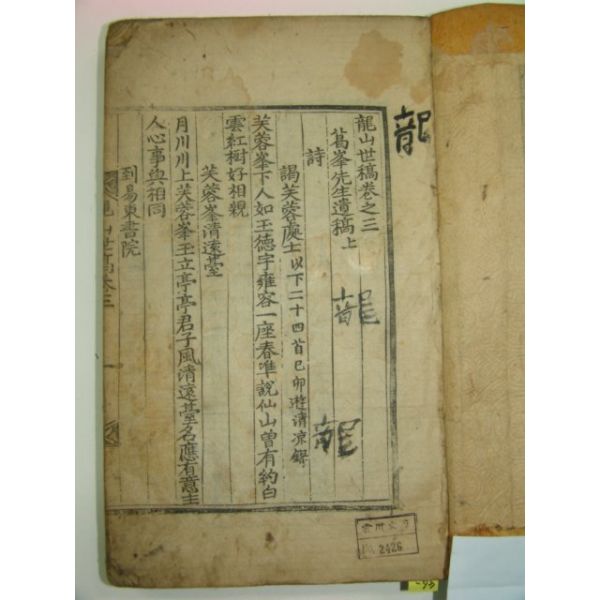 龍山世稿卷之三
葛峯先生遺稿上
詩
謁芙蓉處士以下二十四首己卯遊清凉錄
芙蓉峯下人如玉德宇雍容一座春唯說仙山曾有約白
雲紅樹好相親
芙蓉峯清遠臺
月川川上芙蓉峯玉立亭亭君子風清遠臺名應有意主
人心事與相同
到易東書院
龍
龍
龍
2426